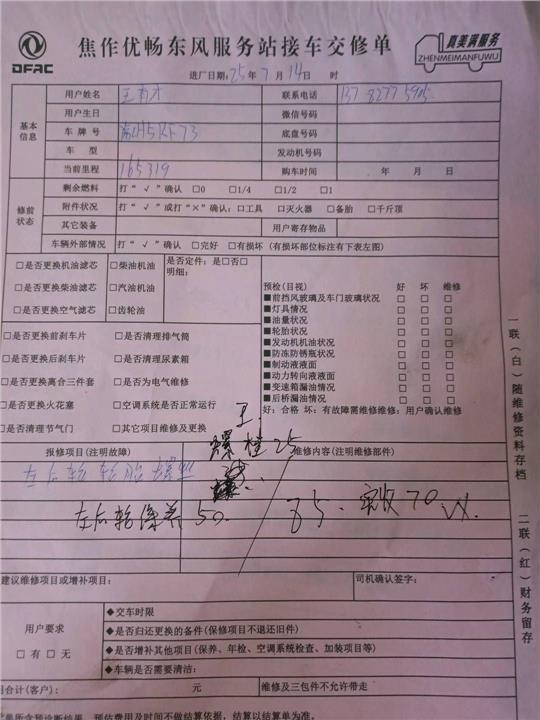 DFAC
焦作优畅东风服务站接车交修单
真美满服务
ZHENMEIMANFUWU
进厂日期:25年7月14日 时
用户姓名 联系电话
基本信息
用户生日 微信号码
车牌号 底盘号码
车型 发动机号码
当前里程 165319 购车时间 年 月 日
修前状态
剩余燃料 打“√”确认 □0 □1/4 □1/2 □1
附件状况 打“√”或打“×”确认:□工具 □灭火器 □备胎 □千斤顶
其它装备 用户寄存物品
车辆外部情况 打“√”确认 □完好 □有损坏 (有损坏部位标注有下表左图)
□是否更换机油滤芯 □柴油机油 是否定件:是□否□
明细:
□是否更换柴油滤芯 □汽油机油
□是否更换空气滤芯 □齿轮油
预检(目视) 好 坏 维修
■前挡风玻璃及车门玻璃状况 □ □ □
■灯具情况 □ □ □
■油量状况 □ □ □
■轮胎状况 □ □ □
■发动机机油状况 □ □ □
■防冻防锈瓶状况 □ □ □
■制动液液面 □ □ □
■动力转向液液面 □ □ □
■变速箱漏油情况 □ □ □
■后桥漏油情况 □ □ □
好:合格 坏:有故障需维修维修:用户确认维修
□是否更换前刹车片 □是否清理排气筒
□是否更换后刹车片 □是否清理尿素箱
□是否更换离合三件套 □是否为电气维修
□是否更换火花塞 □空调系统是否正常运行
□是否清理节气门 □其它项目维修及更换
报修项目(注明故障) 维修内容(注明维修部件)
螺柱25
左后轮轮胎螺丝
左后轮保养 50. 85. 实收70
建议维修项目或增补项目: 司机确认签字:
用户要求
□有□无
◆交车时限
◆是否归还更换的备件(保修项目不退还旧件)
◆是否增补其他项目(保养、年检、空调系统检查、加装项目等)
◆车辆是否需要清洁:
用合计(客户): 元 维修及三包件不允许带走
预估费用及时间不做结算依据,结算以结算单为准。
一联(白)随维修资料存档
二联(红)财务留存